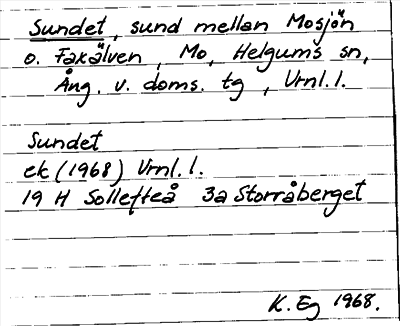 Sundet, sund mellan Mosjön
o. Faxälven, Mo, Helgums sn,
Ång. v. doms. tg, Vrnl. l.
Sundet
ek (1968) Vrnl. l.
19 H Sollefteå 3a Storråberget
K. Eg 1968.